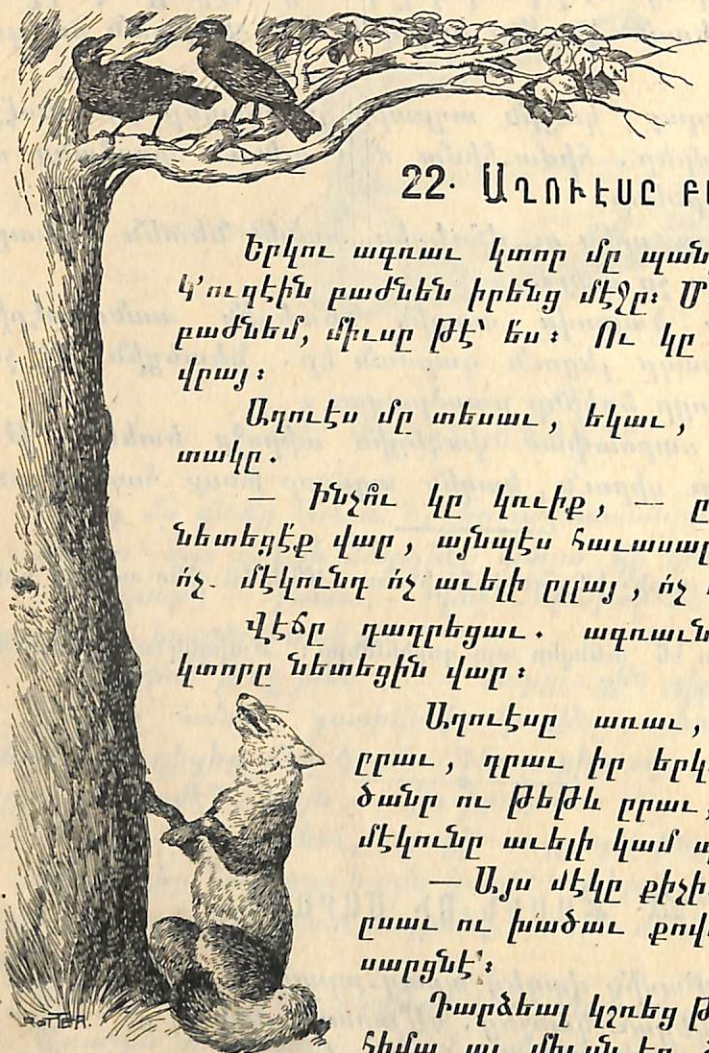 22. ԱՂՈՒԷՍԸ
Երկու ագռաւ կտոր մը
Կ՚ուզէին բաժնեն իրենց մէջը։
բաժնեմ, միւսը թէ՝ ես։ Ու կը
վրայ։
Աղուէս մը տեսաւ, եկաւ,
տակը.
— Ինչո՞ւ կը կռուիք, —
նետեցէ՛ք վար, այնպէս
ո՛չ մէկունդ ո՛չ աւելի ըլլայ, ո՛չ
Վէճը դադրեցաւ.
կտորը նետեցին վար։
Աղուէսը առաւ,
ըրաւ, դրաւ իր
ծանր ու թեթեւ ըրաւ,
մէկունը աւելի կամ
— Այս մէկը
ըսաւ ու խածաւ
սարցնէ՛։
Դարձեալ կշռեց
հիմա ալ
ROTTER.